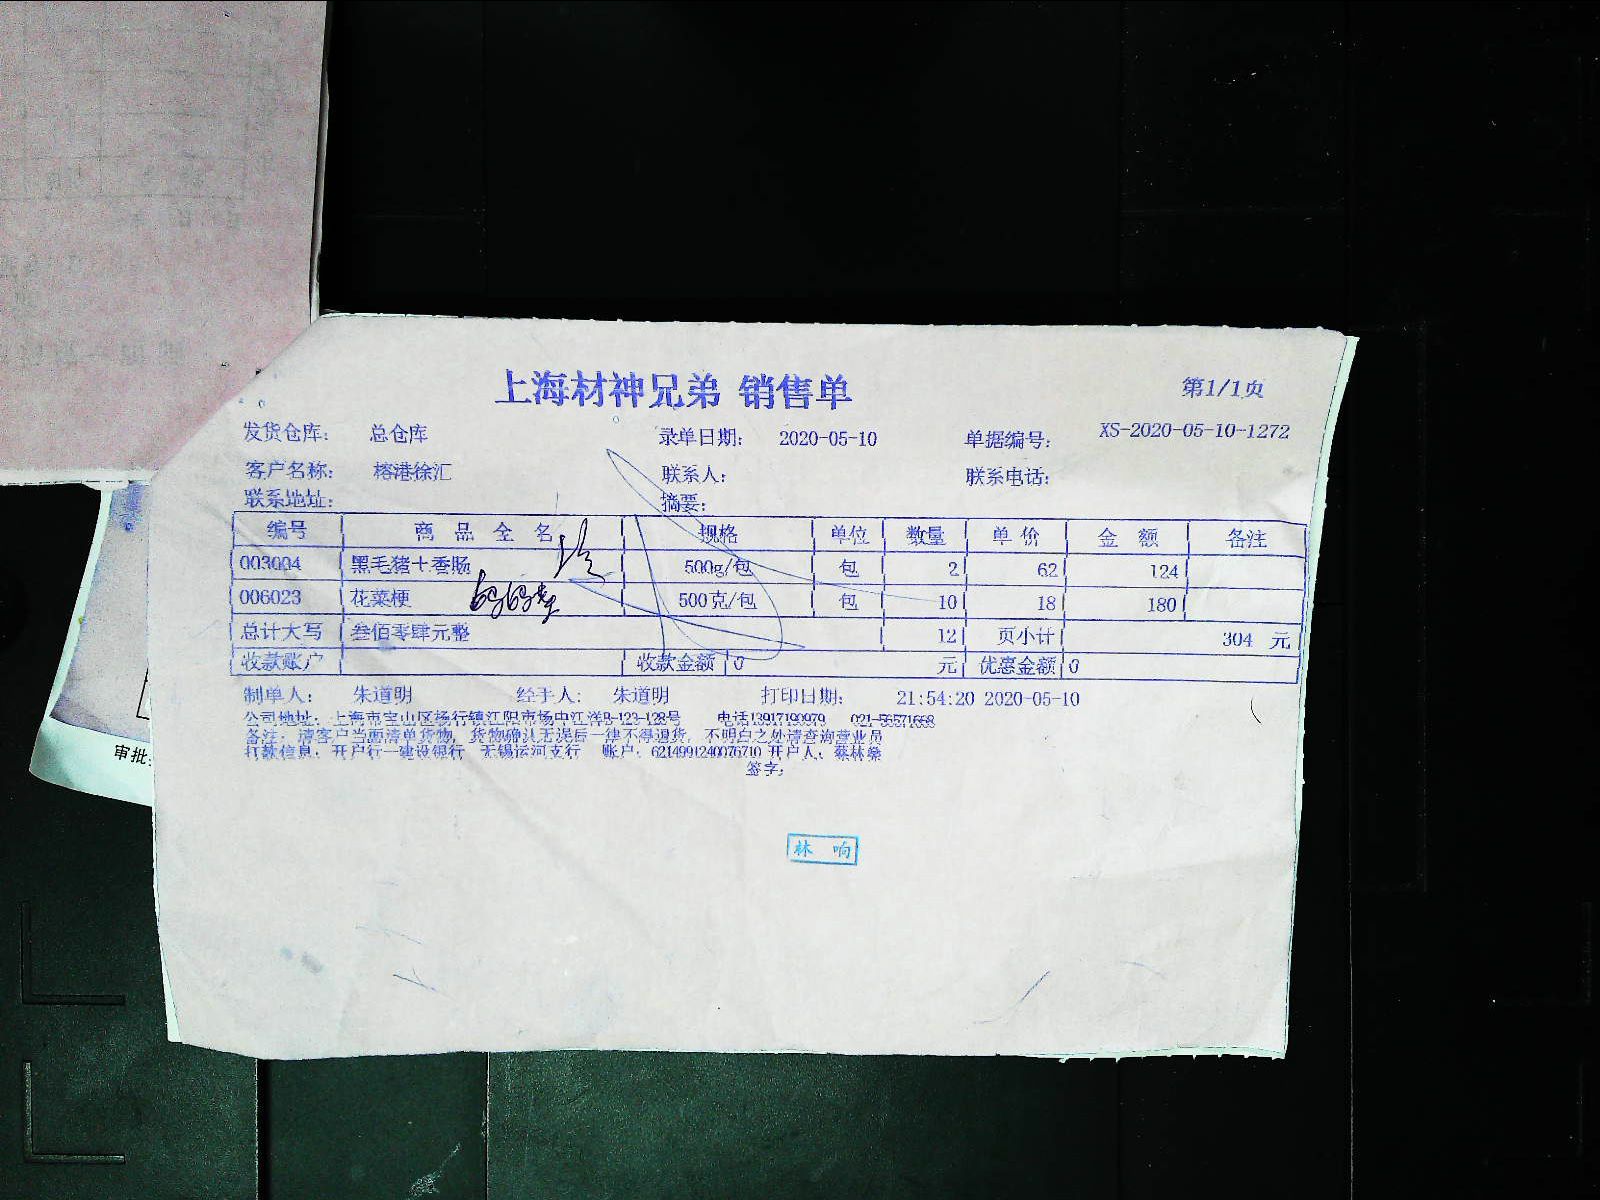 上海材神兄弟 销售单
第1/1页
发货仓库: 总仓库 录单日期: 2020-05-10 单据编号: XS-2020-05-10-1272
客户名称: 榕港徐汇 联系人: 联系电话:
联系地址: 摘要:
编号 商品全名 规格 单位 数量 单价 金额 备注
003004 黑毛猪十香肠 500g/包 包 2 62 124
006023 花菜梗 500克/包 包 10 18 180
总计大写 叁佰零肆元整 12 页小计 304 元
收款账户 收款金额 0 元 优惠金额 0
制单人: 朱道明 经手人: 朱道明 打印日期: 21:54:20 2020-05-10
公司地址: 上海市宝山区杨行镇江阳市场中江洋B-123-128号 电话13917190979 021-56571668
备注: 请客户当面清单货物, 货物确认无误后一律不得退货, 不明白之处请查询营业员
打款信息: 开户行—建设银行 无锡运河支行 账户: 6214991240076710 开户人: 蔡林燊
签字:
林 响
审批: